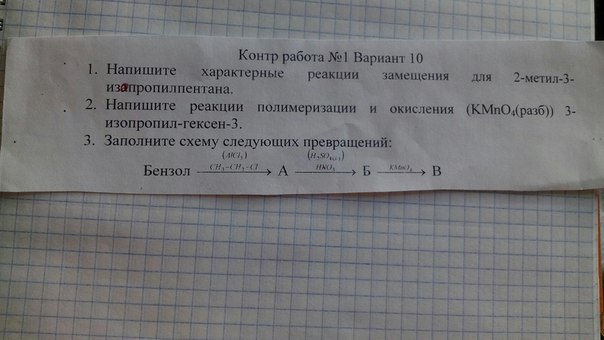 Контр работа №1 Вариант 10
1. Напишите характерные реакции замещения для 2-метил-3-
изапропилпентана.
2. Напишите реакции полимеризации и окисления (KMnO₄(разб)) 3-
изопропил-гексен-3.
3. Заполните схему следующих превращений:
(AlCl₃) (H₂SO₄₍к₎)
Бензол CH₃-CH₂-Cl А HNO₃ Б KMnO₄ В